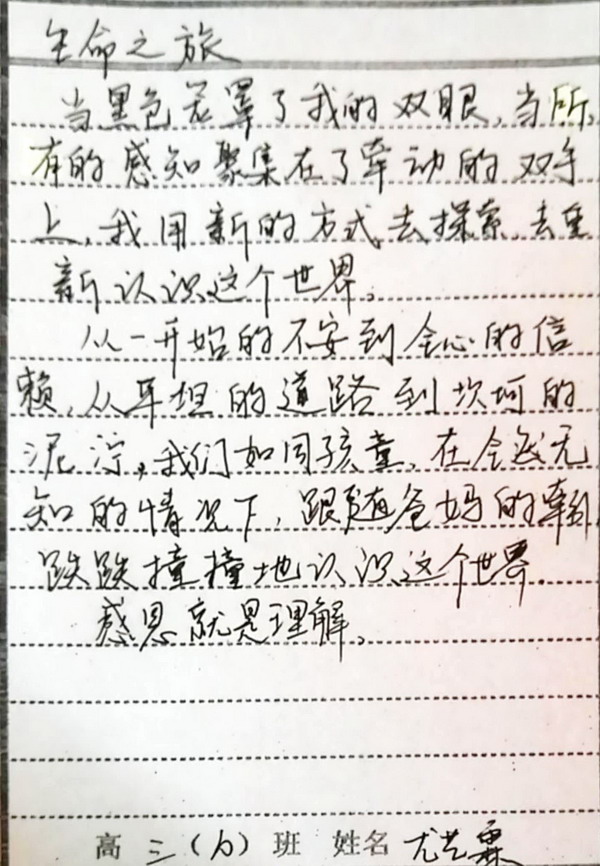 生命之旅
当黑色笼罩了我的双眼，当所
有的感知聚集在了牵动的双手
上，我用新的方式去探索，去重
新认识这个世界。
从一开始的不安到全心的信
赖，从平坦的道路到坎坷的
泥泞，我们如同孩童，在全然无
知的情况下，跟随爸妈的牵引，
跌跌撞撞地认识这个世界。
感恩就是理解。
高三（6）班 姓名 尤艺霖